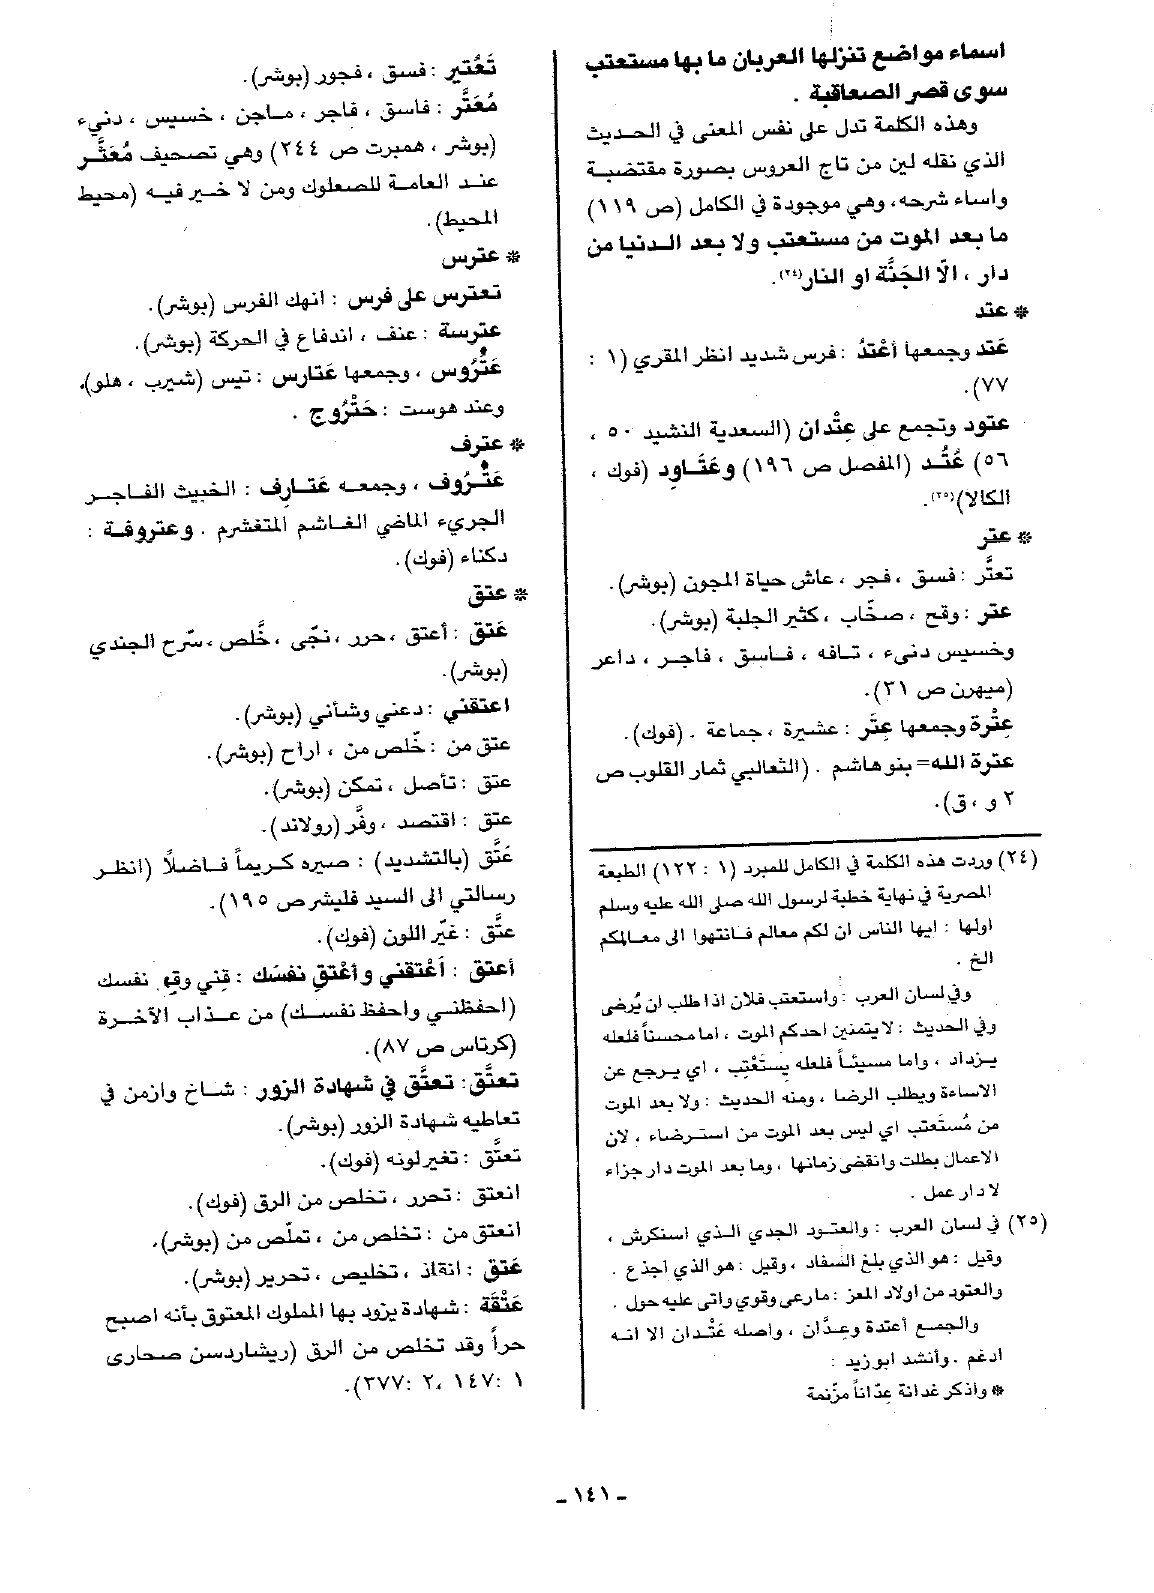 اسماء مواضع تنزلها العربان ما بها مستعتب
سوى قصر الصعاقبة .
وهذه الكلمة تدل على نفس المعنى في الحديث
الذي نقله لين من تاج العروس بصورة مقتضبة
واساء شرحه، وهي موجودة في الكامل (ص ١١٩)
ما بعد الموت من مستعتب ولا بعد الدنيا من
دار ، الّا الجَنَّة او النار(٢٤).
* عتد
عَتد وجمعها أعْتدُ : فرس شديد انظر المقري (١ :
٧٧).
عتود وتجمع على عِتْدان (السعدية النشيد ٥٠ ،
٥٦) عُتُد (المفصل ص ١٩٦) وعَتَاود (فوك ،
الكالا)(٢٥).
* عتر
تعتَّر : فسق ، فجر ، عاش حياة المجون (بوشر).
عتر : وقح ، صخّاب ، كثير الجلبة (بوشر).
وخسيس دنيء ، تافه ، فاسق ، فاجر ، داعر
(ميهرن ص ٣١).
عِتْرة وجمعها عِتَر : عشيرة ، جماعة . (فوك).
عترة الله= بنو هاشم . (الثعالبي ثمار القلوب ص
٢ و ، ق).
(٢٤) وردت هذه الكلمة في الكامل للمبرد (١ : ١٢٢) الطبعة
المصرية في نهاية خطبة لرسول الله صلى الله عليه وسلم
اولها : ايها الناس ان لكم معالم فانتهوا الى معالمكم
الخ .
وفي لسان العرب : واستعتب فلان اذا طلب ان يُرضى
وفي الحديث : لا يتمنين احدكم الموت ، اما محسناً فلعله
يزداد ، واما مسيئاً فلعله يستَعْتِب ، اي يرجع عن
الاساءة ويطلب الرضا ، ومنه الحديث : ولا بعد الموت
من مُستَعتب اي ليس بعد الموت من استرضاء ، لان
الاعمال بطلت وانقضى زمانها ، وما بعد الموت دار جزاء
لا دار عمل .
(٢٥) في لسان العرب : والعتود الجدي الذي استكرش ،
وقيل : هو الذي بلغ السفاد ، وقيل : هو الذي أجذع .
والعتود من اولاد المعز : ما رعى وقوي واتى عليه حول .
والجمع أعتدة وعِدَّان ، واصله عَتْدان الا انه
ادغم . وأنشد ابو زيد :
* واذكر غدانة عِدّاناً مزّنمة
تَعْتير : فسق ، فجور (بوشر).
مُعَتَّر : فاسق ، فاجر ، ماجن ، خسيس ، دنيء
(بوشر ، همبرت ص ٢٤٤) وهي تصحيف مُعَثَّر
عند العامة للصعلوك ومن لا خير فيه (محيط
المحيط).
* عترس
تعترس على فرس : انهك الفرس (بوشر).
عترسة : عنف ، اندفاع في الحركة (بوشر).
عَتْرُوس ، وجمعها عَتَارس : تيس (شيرب ، هلو)،
وعند هوست : حَتْرُوج .
* عترف
عَتْرُوف ، وجمعه عَتَارف : الخبيث الفاجر
الجريء الماضي الغاشم المتغشرم . وعتروفة :
دكناء (فوك).
* عتق
عَتق : أعتق ، حرر ، نجّى ، خلَّص ، سّرح الجندي
(بوشر).
اعتقني : دعني وشأني (بوشر).
عتق من : خّلص من ، اراح (بوشر).
عتق : تأصل ، تمكن (بوشر).
عتق : اقتصد ، وفَّر (رولاند).
عَتَّق (بالتشديد) : صيره كريماً فاضلاً (انظر
رسالتي الى السيد فليشر ص ١٩٥).
عتَّق : غيّر اللون (فوك).
أعتق : أعْتقني وأعْتق نفسَك : قِني وقِ نفسك
(احفظني واحفظ نفسك) من عذاب الآخرة
(كرتاس ص ٨٧).
تعتَّق : تعتَّق في شهادة الزور : شاخ وازمن في
تعاطيه شهادة الزور (بوشر).
تعتَّق : تغير لونه (فوك).
انعتق : تحرر ، تخلص من الرق (فوك).
انعتق من : تخلص من ، تملّص من (بوشر).
عَتق : انقاذ ، تخليص ، تحرير (بوشر).
عَتْقَة : شهادة يزود بها المملوك المعتوق بأنه اصبح
حراً وقد تخلص من الرق (ريشاردسن صحارى
١ :١٤٧ ،٢ :٣٧٧).
ـ ١٤١ ـ